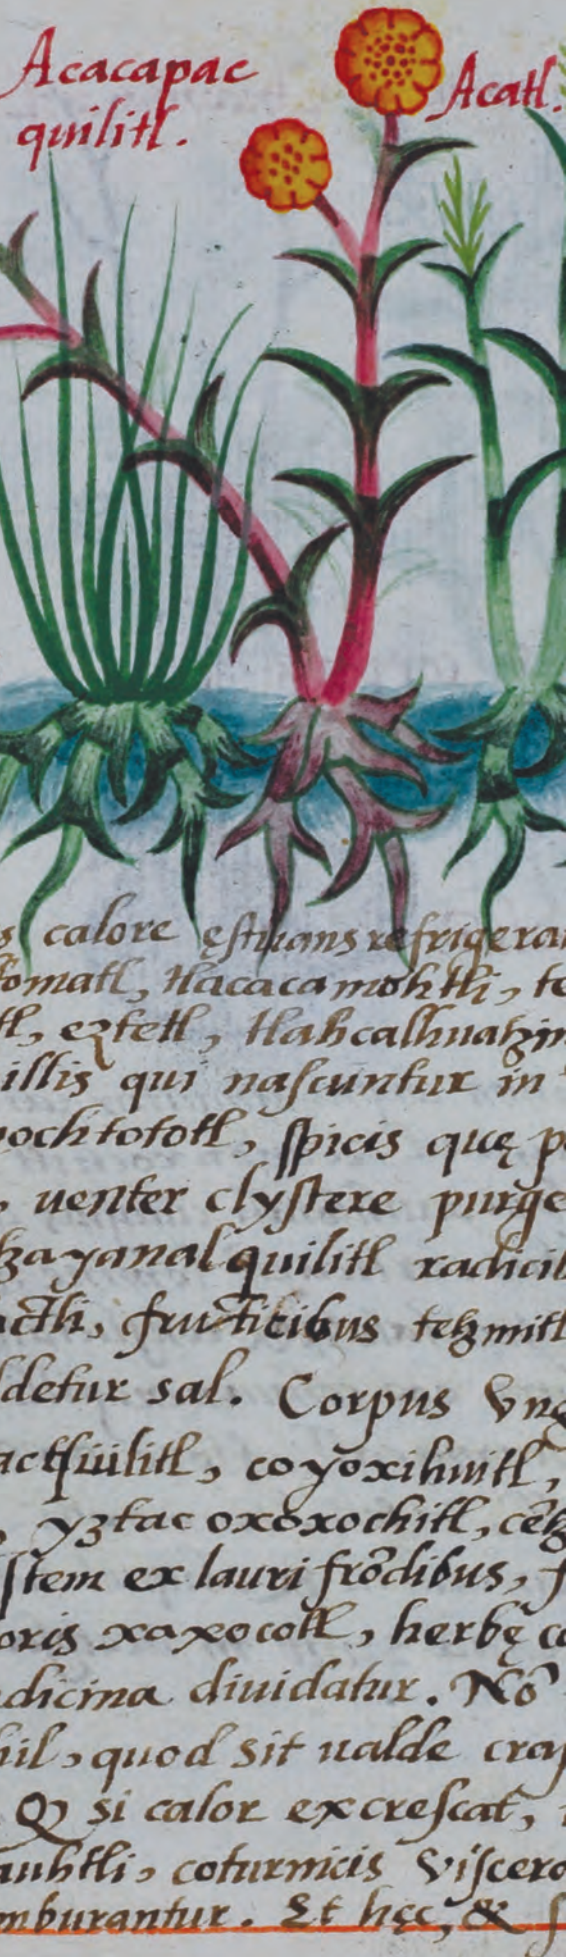 Acacapac
quilitl.
Acatl.
calore ęstuans refrigera
tomatl, tlacacamohtli, te
tl, eztetl, tlahcalhuatzin
illis qui nascuntur in
ochtototl, spicis quę p
, uenter clystere purge
tzayanalquilitl radicib
ctli, fructicibus tetzmitl
detur sal. Corpus Vng
quilitl, coyoxihuitl,
, yztac oxoxochitl, cētz
stem ex lauri frōdibus, f
oris xaxocotl, herbę co
dicina diuidatur. Nō
hil, quod sit ualde cras
Q si calor excrescat,
auhtli, coturnicis Viscero
mburantur. Et hęc, & s